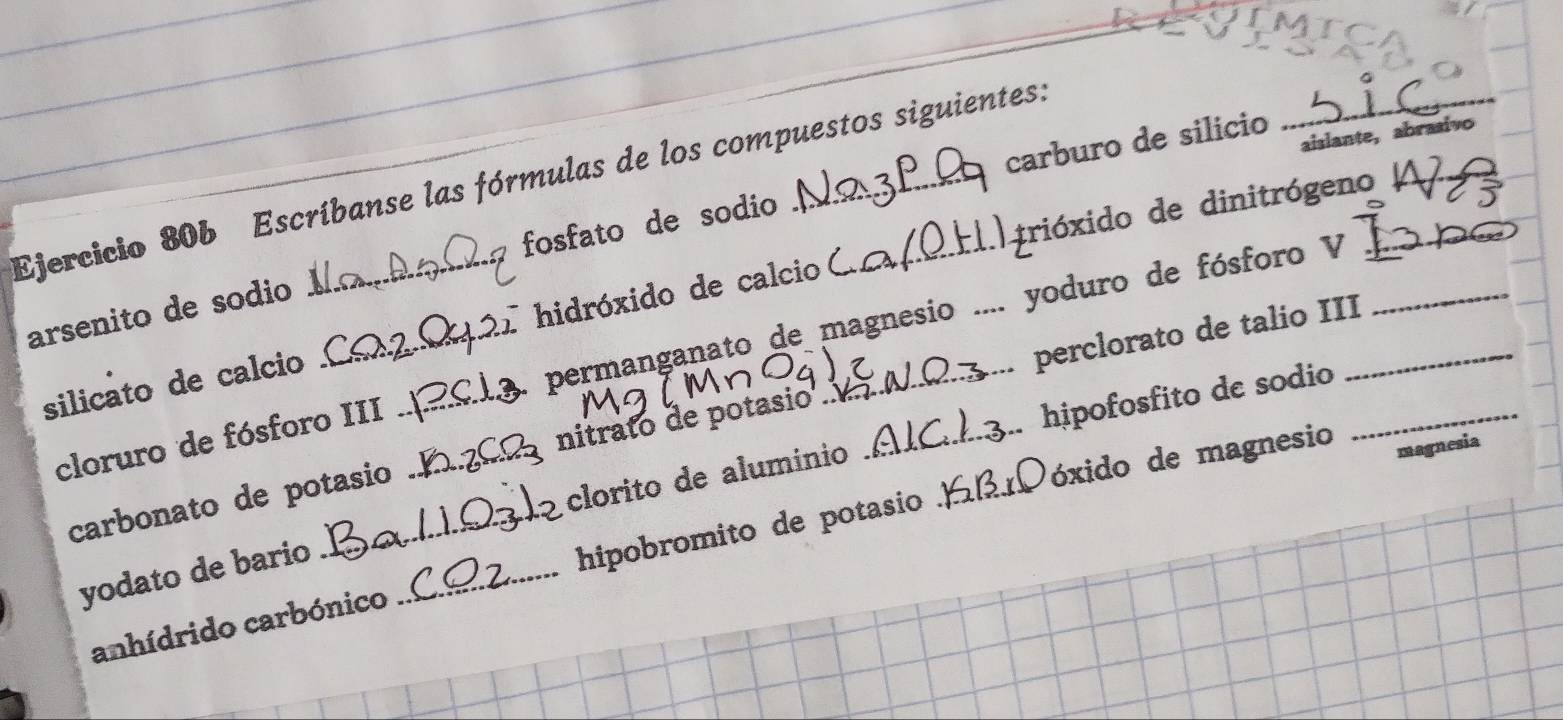 Ejercicio 80b Escríbanse las fórmulas de los compuestos siguientes:
arsenito de sodio fosfato de sodio Na3PO4 carburo de silicio SiC
aislante, abrasivo
silicato de calcio Ca2O4Si hidróxido de calcio Ca(OH)2 trióxido de dinitrógeno N2O3
cloruro de fósforo III PCl3 permanganato de magnesio .... yoduro de fósforo V
Mg(MnO4)2
carbonato de potasio K2CO3 nitrato de potasio K2NO3 perclorato de talio III
yodato de bario Ba(IO3)2 clorito de aluminio AlCl3 hipofosfito de sodio
anhídrido carbónico CO2 hipobromito de potasio KBrO óxido de magnesio
magnesia